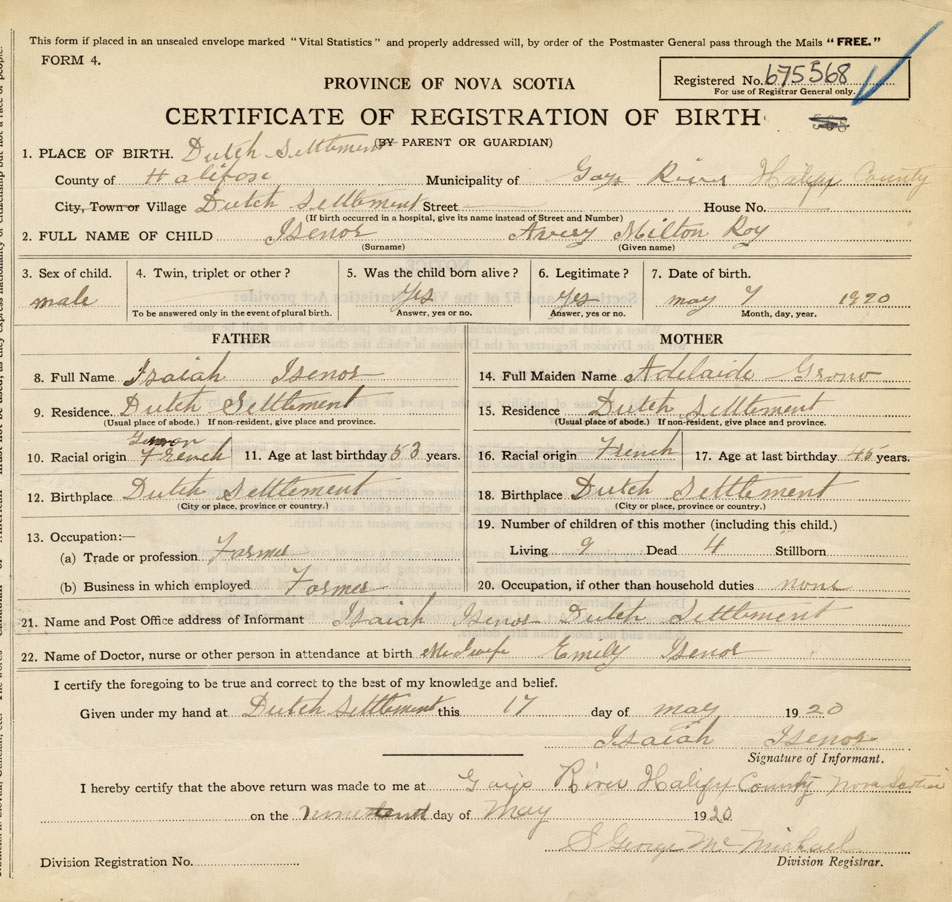 This form if placed in an unsealed envelope marked "Vital Statistics" and properly addressed will, by order of the Postmaster General pass through the Mails "FREE."
FORM 4.
Registered No. 675568
For use of Registrar General only.
PROVINCE OF NOVA SCOTIA
CERTIFICATE OF REGISTRATION OF BIRTH
(BY PARENT OR GUARDIAN)
1. PLACE OF BIRTH. Dutch Settlement
County of Halifax Municipality of Gays River Halifax County
City, Town or Village Dutch Settlement Street House No.
(If birth occurred in a hospital, give its name instead of Street and Number)
2. FULL NAME OF CHILD Isenor Avery Milton Roy
(Surname) (Given name)
3. Sex of child. 4. Twin, triplet or other? 5. Was the child born alive? 6. Legitimate? 7. Date of birth.
male Yes Yes may 7 1920
To be answered only in the event of plural birth. Answer, yes or no. Answer, yes or no. Month, day, year.
FATHER MOTHER
8. Full Name Isaiah Isenor 14. Full Maiden Name Adelaide Grono
9. Residence. Dutch Settlement 15. Residence Dutch Settlement
(Usual place of abode.) If non-resident, give place and province. (Usual place of abode.) If non-resident, give place and province.
German
10. Racial origin French 11. Age at last birthday 53 years. 16. Racial origin French 17. Age at last birthday 46 years.
12. Birthplace Dutch Settlement 18. Birthplace Dutch Settlement
(City or place, province or country.) (City or place, province or country.)
13. Occupation:— 19. Number of children of this mother (including this child.)
(a) Trade or profession Farmer Living 9 Dead 4 Stillborn
(b) Business in which employed Farmer 20. Occupation, if other than household duties none
21. Name and Post Office address of Informant Isaiah Isenor Dutch Settlement
22. Name of Doctor, nurse or other person in attendance at birth Emily Isenor
I certify the foregoing to be true and correct to the best of my knowledge and belief.
Given under my hand at Dutch Settlement this 17 day of may 1920
Isaiah Isenor
Signature of Informant.
I hereby certify that the above return was made to me at Gays River Halifax County Nova Scotia
on the day of May 1920
S George McMichael
Division Registrar.
Division Registration No.